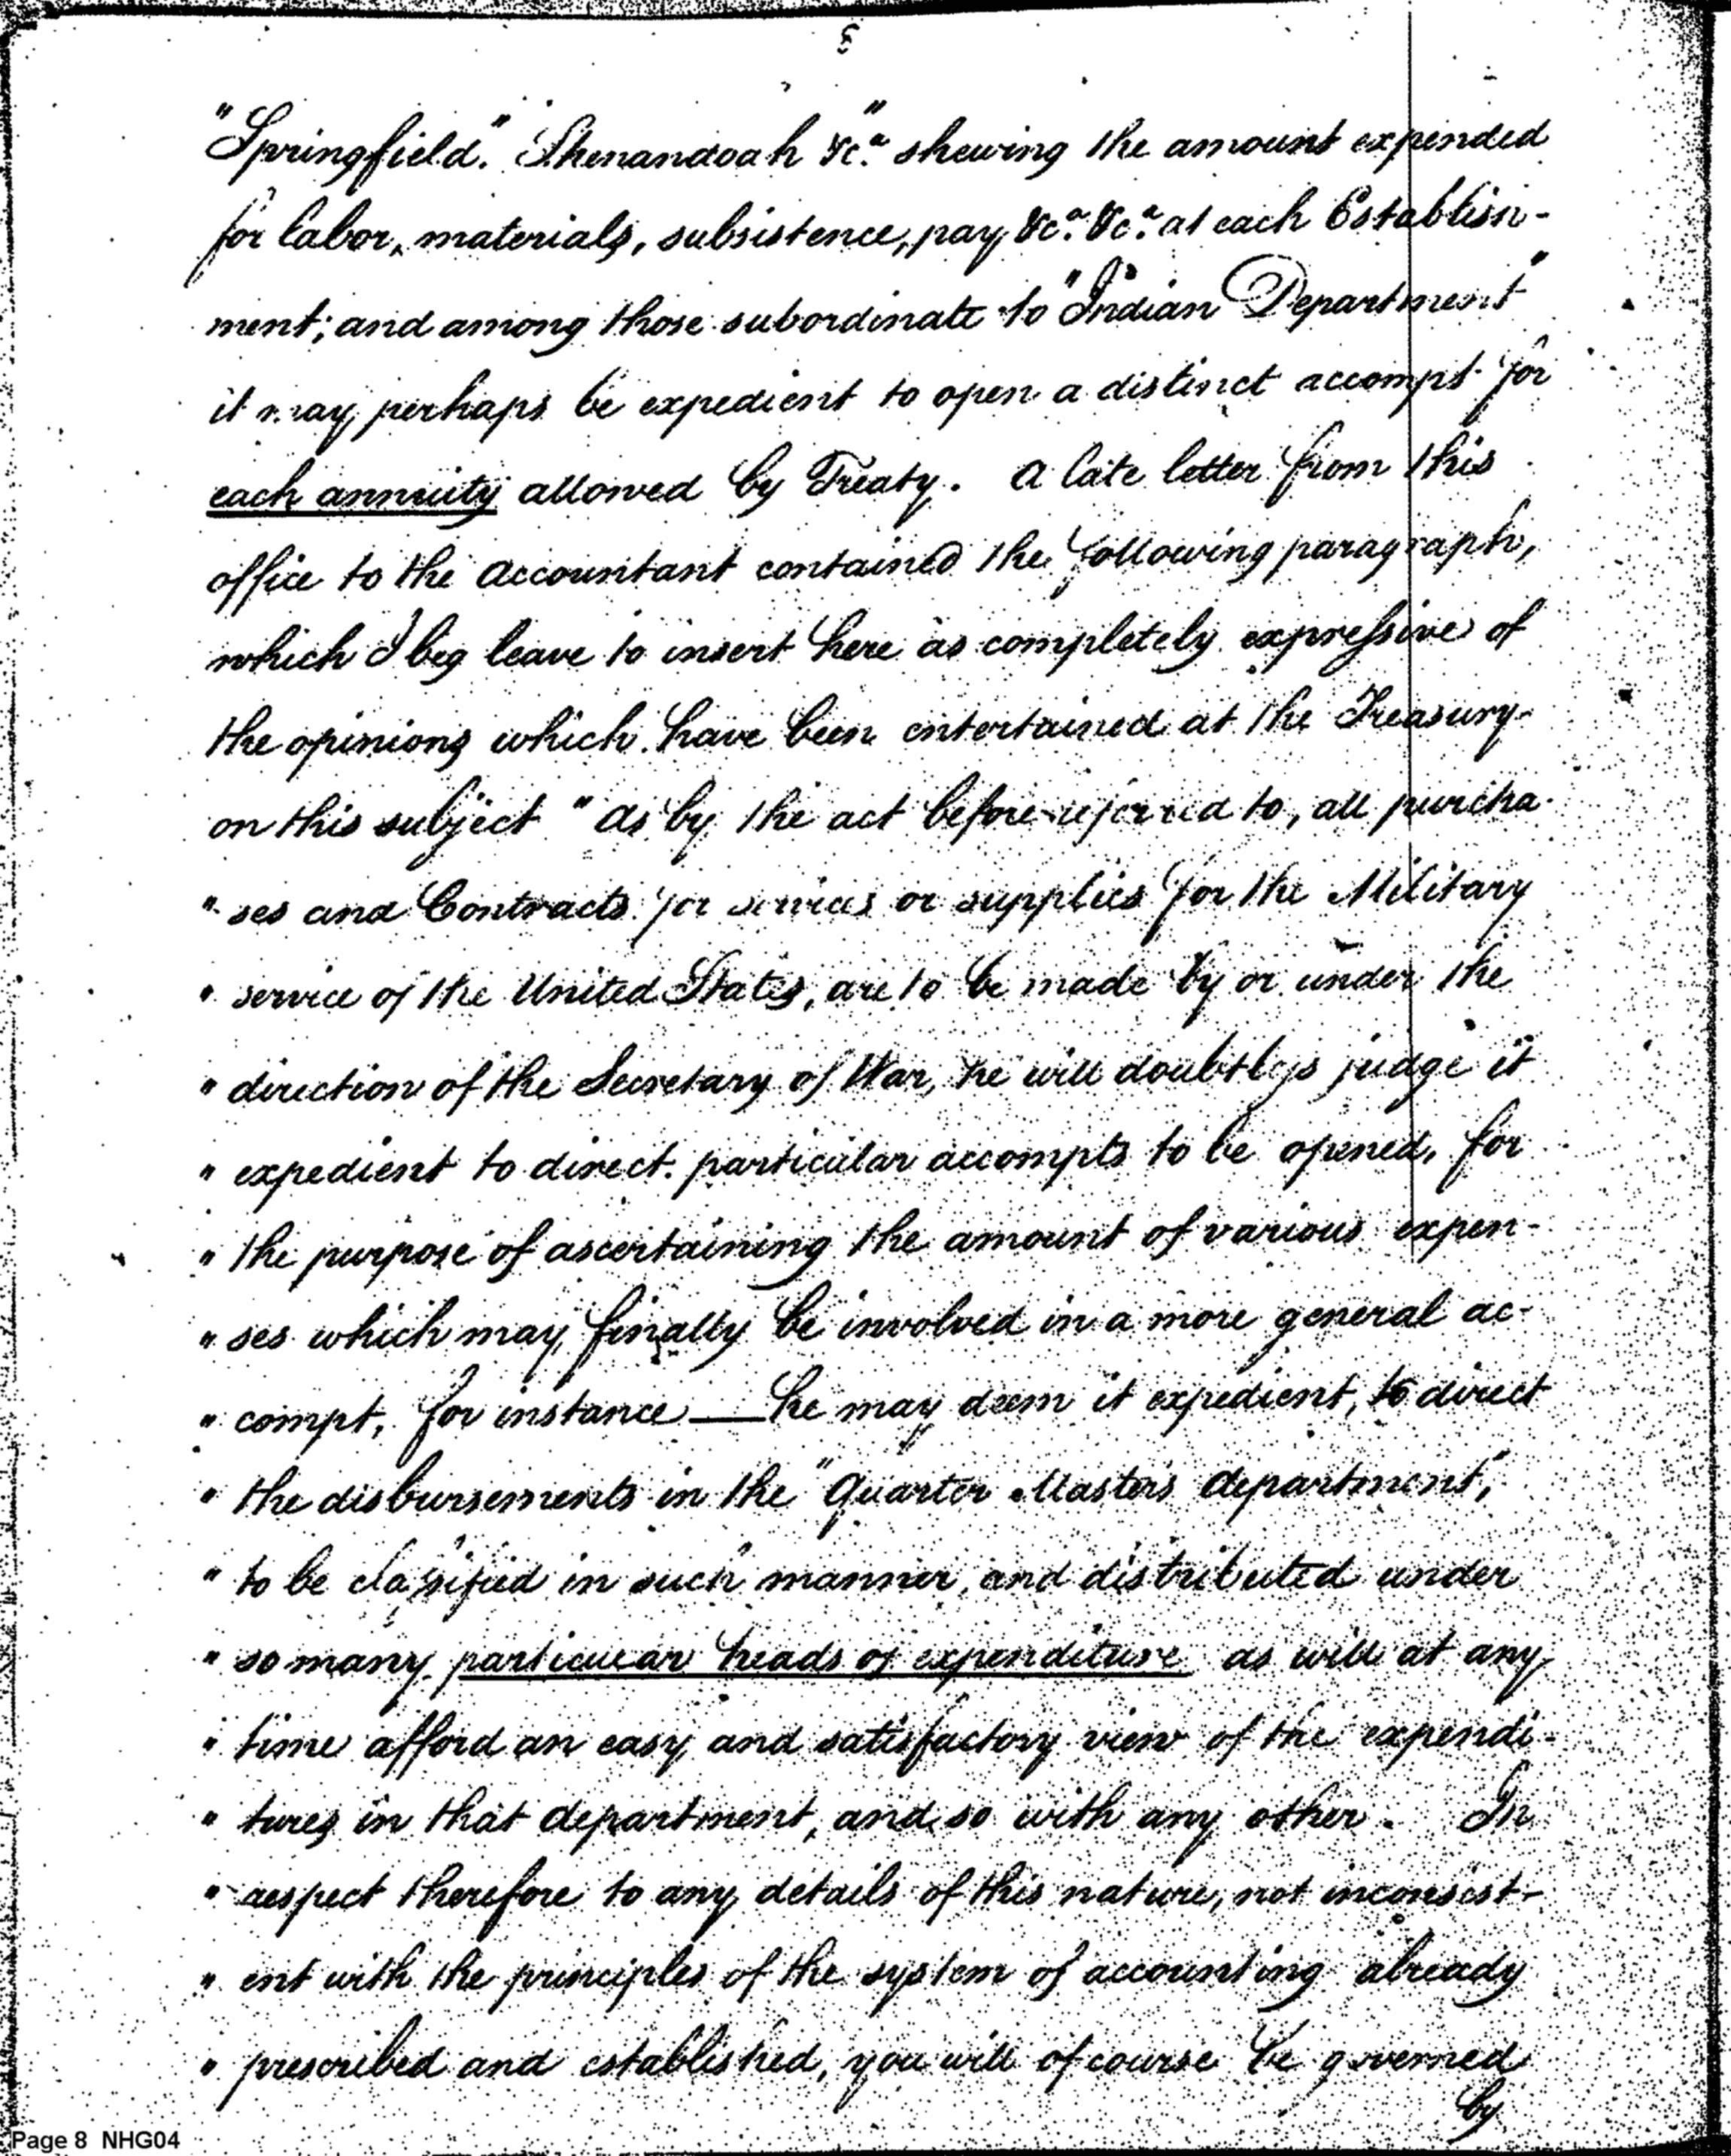 3
"Springfield." Shenandoah" &c.a shewing the amount expended
for labor, materials, subsistence, pay, &c.a &c.a at each Establish-
ment; and among those subordinate to "Indian Department"
it may perhaps be expedient to open a distinct accompt for
each annuity allowed by Treaty. A late letter from this
office to the Accountant contained the following paragraph,
which I beg leave to insert here as completely expressive of
the opinions which have been entertained at the Treasury
on this subject "As by the act before referred to, all purcha-
" ses and Contracts for services or supplies for the Military
" service of the United States, are to be made by or under the
" direction of the Secretary of War, he will doubtless judge it
" expedient to direct particular accompts to be opened, for
" the purpose of ascertaining the amount of various expen-
" ses which may finally be involved in a more general ac-
" compt, for instance — he may deem it expedient, to direct
" the disbursements in the "Quarter Masters department",
" to be classified in such manner, and distributed under
" so many particular heads of expenditure as will at any
" time afford an easy and satisfactory view of the expendi-
" tures in that department, and so with any other. In
" respect therefore to any details of this nature, not inconsist-
" ent with the principles of the system of accounting already
" prescribed and established, you will of course be governed
by
Page 8 NHG04